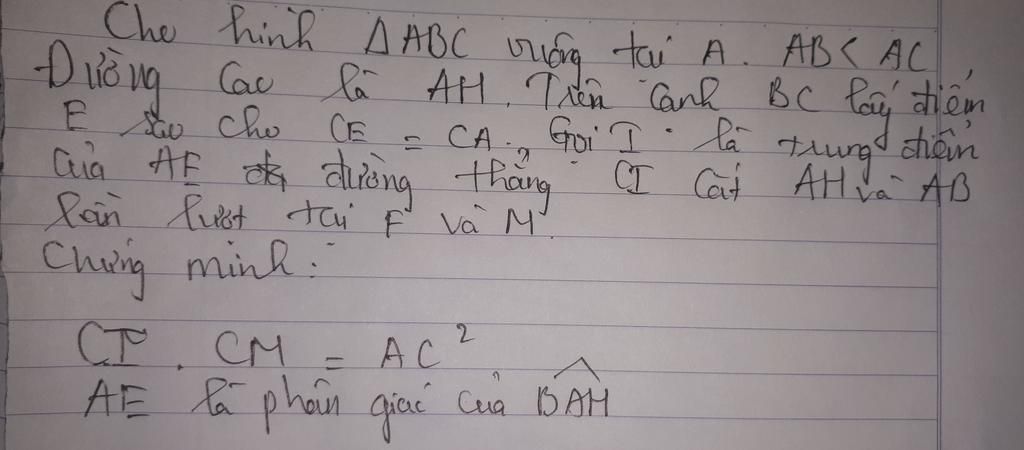 Cho hình ΔABC vuông tại A. AB < AC,
Đường cao là AH. Trên cạnh BC lấy điểm
E sao cho CE = CA. Gọi I là trung điểm
của AE đường thẳng CI cắt AH và AB
lần lượt tại F và M.
Chứng minh:
CI . CM = AC²
AE là phân giác của BAH